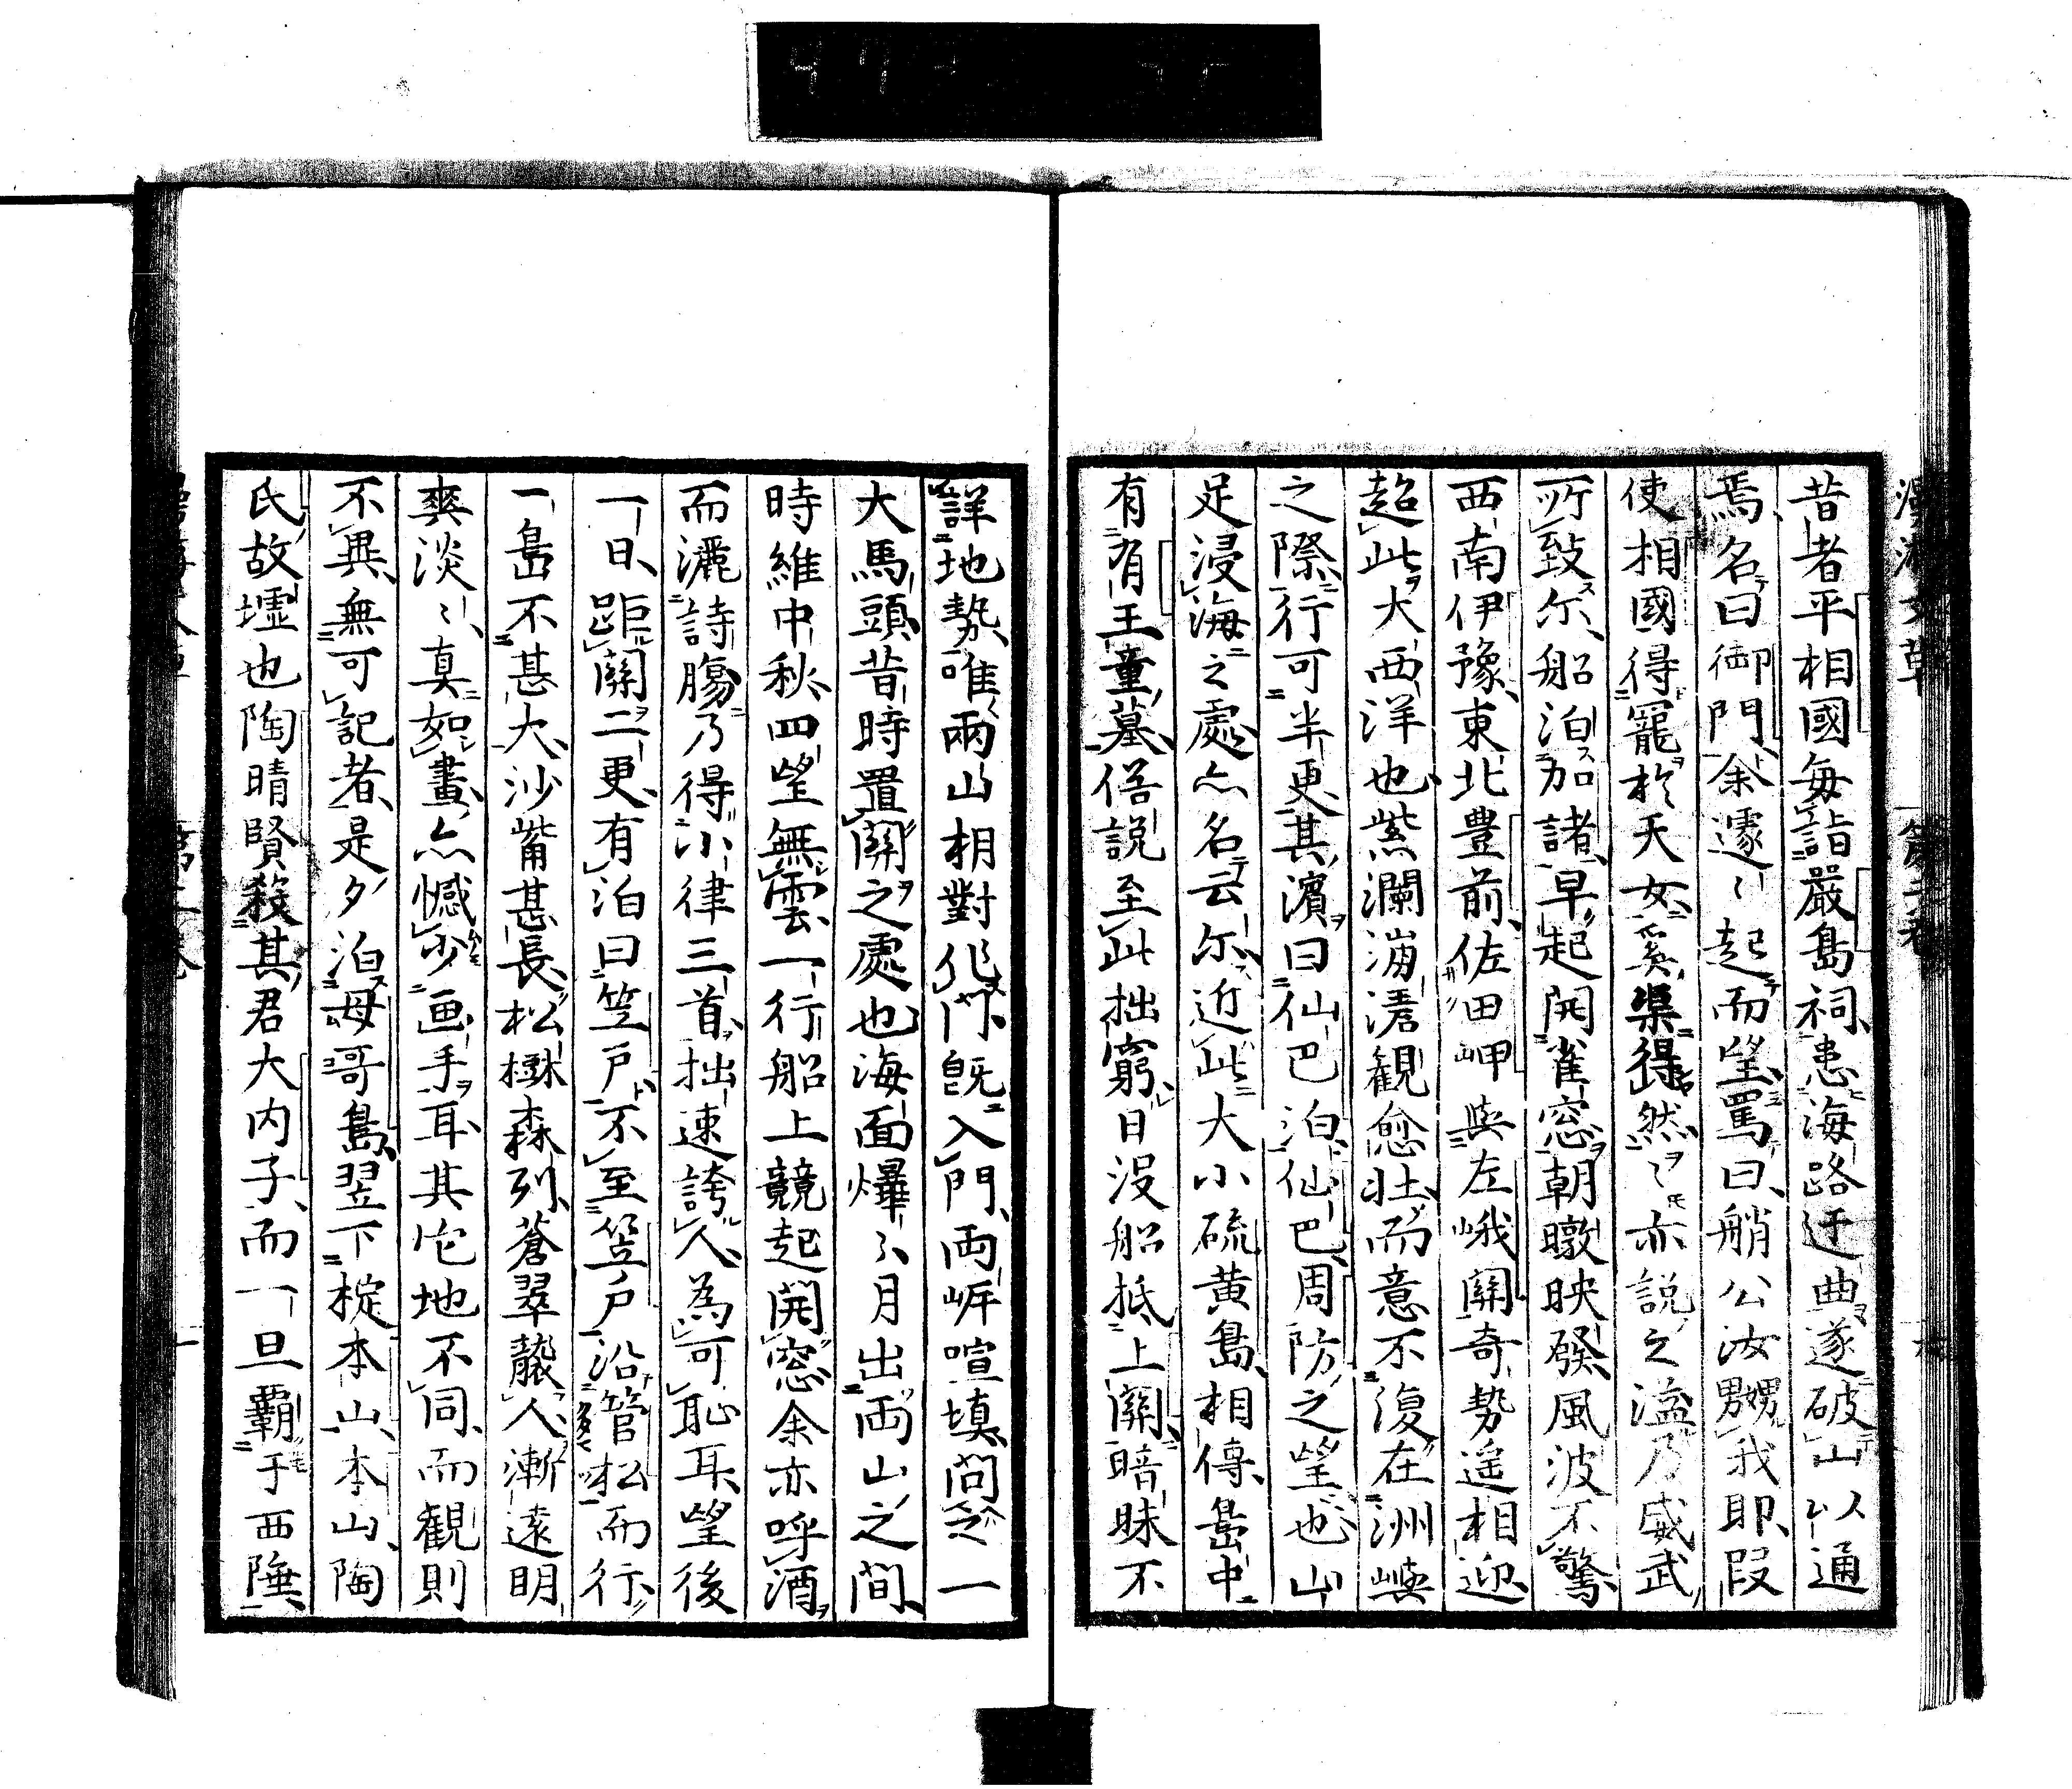 昔者平相國每詣嚴島祠患海路迂曲遂破山以通
焉名曰御門余遽〻起而望罵曰艄公汝嬲我耶叚
使相國得寵於天女奚渠得然〻亦說之溢乃威武
所致尓船泊加諸早起開雀窓朝暾映發風波不驚
西南伊豫東北豊前佐田岬與左峨關奇勢遥相迎
超此大西洋也紫瀾漰湱觀愈壯而意不復在洲嶼
之際行可半更其濱曰仙巴泊仙巴周防之望也山
足浸海之處亦名云尓近此大小硫黄島相傳島中
有有王童墓俗説至此拙窮日没船抵上關暗昧不
詳地勢唯兩山相對作門既入門両岸喧填問之一
大馬頭昔時置關之處也海面爗〻月出両山之間
時維中秋四望無雲一行船上競起開窓余亦呼酒
而灑詩膓乃得小律三首拙速誇人為可恥耳望後
一日距關二更有泊曰笠戸不至笠戸沿管松而行
一島不甚大沙觜甚長松樾森列蒼翠襲人漸遠明
爽淡〻真如畫亦憾少画手耳其它地不同而觀則
不異無可記者是夕泊母哥島翌下椗本山本山陶
氏故墟也陶晴賢殺其君大内子而一旦覇于西陲